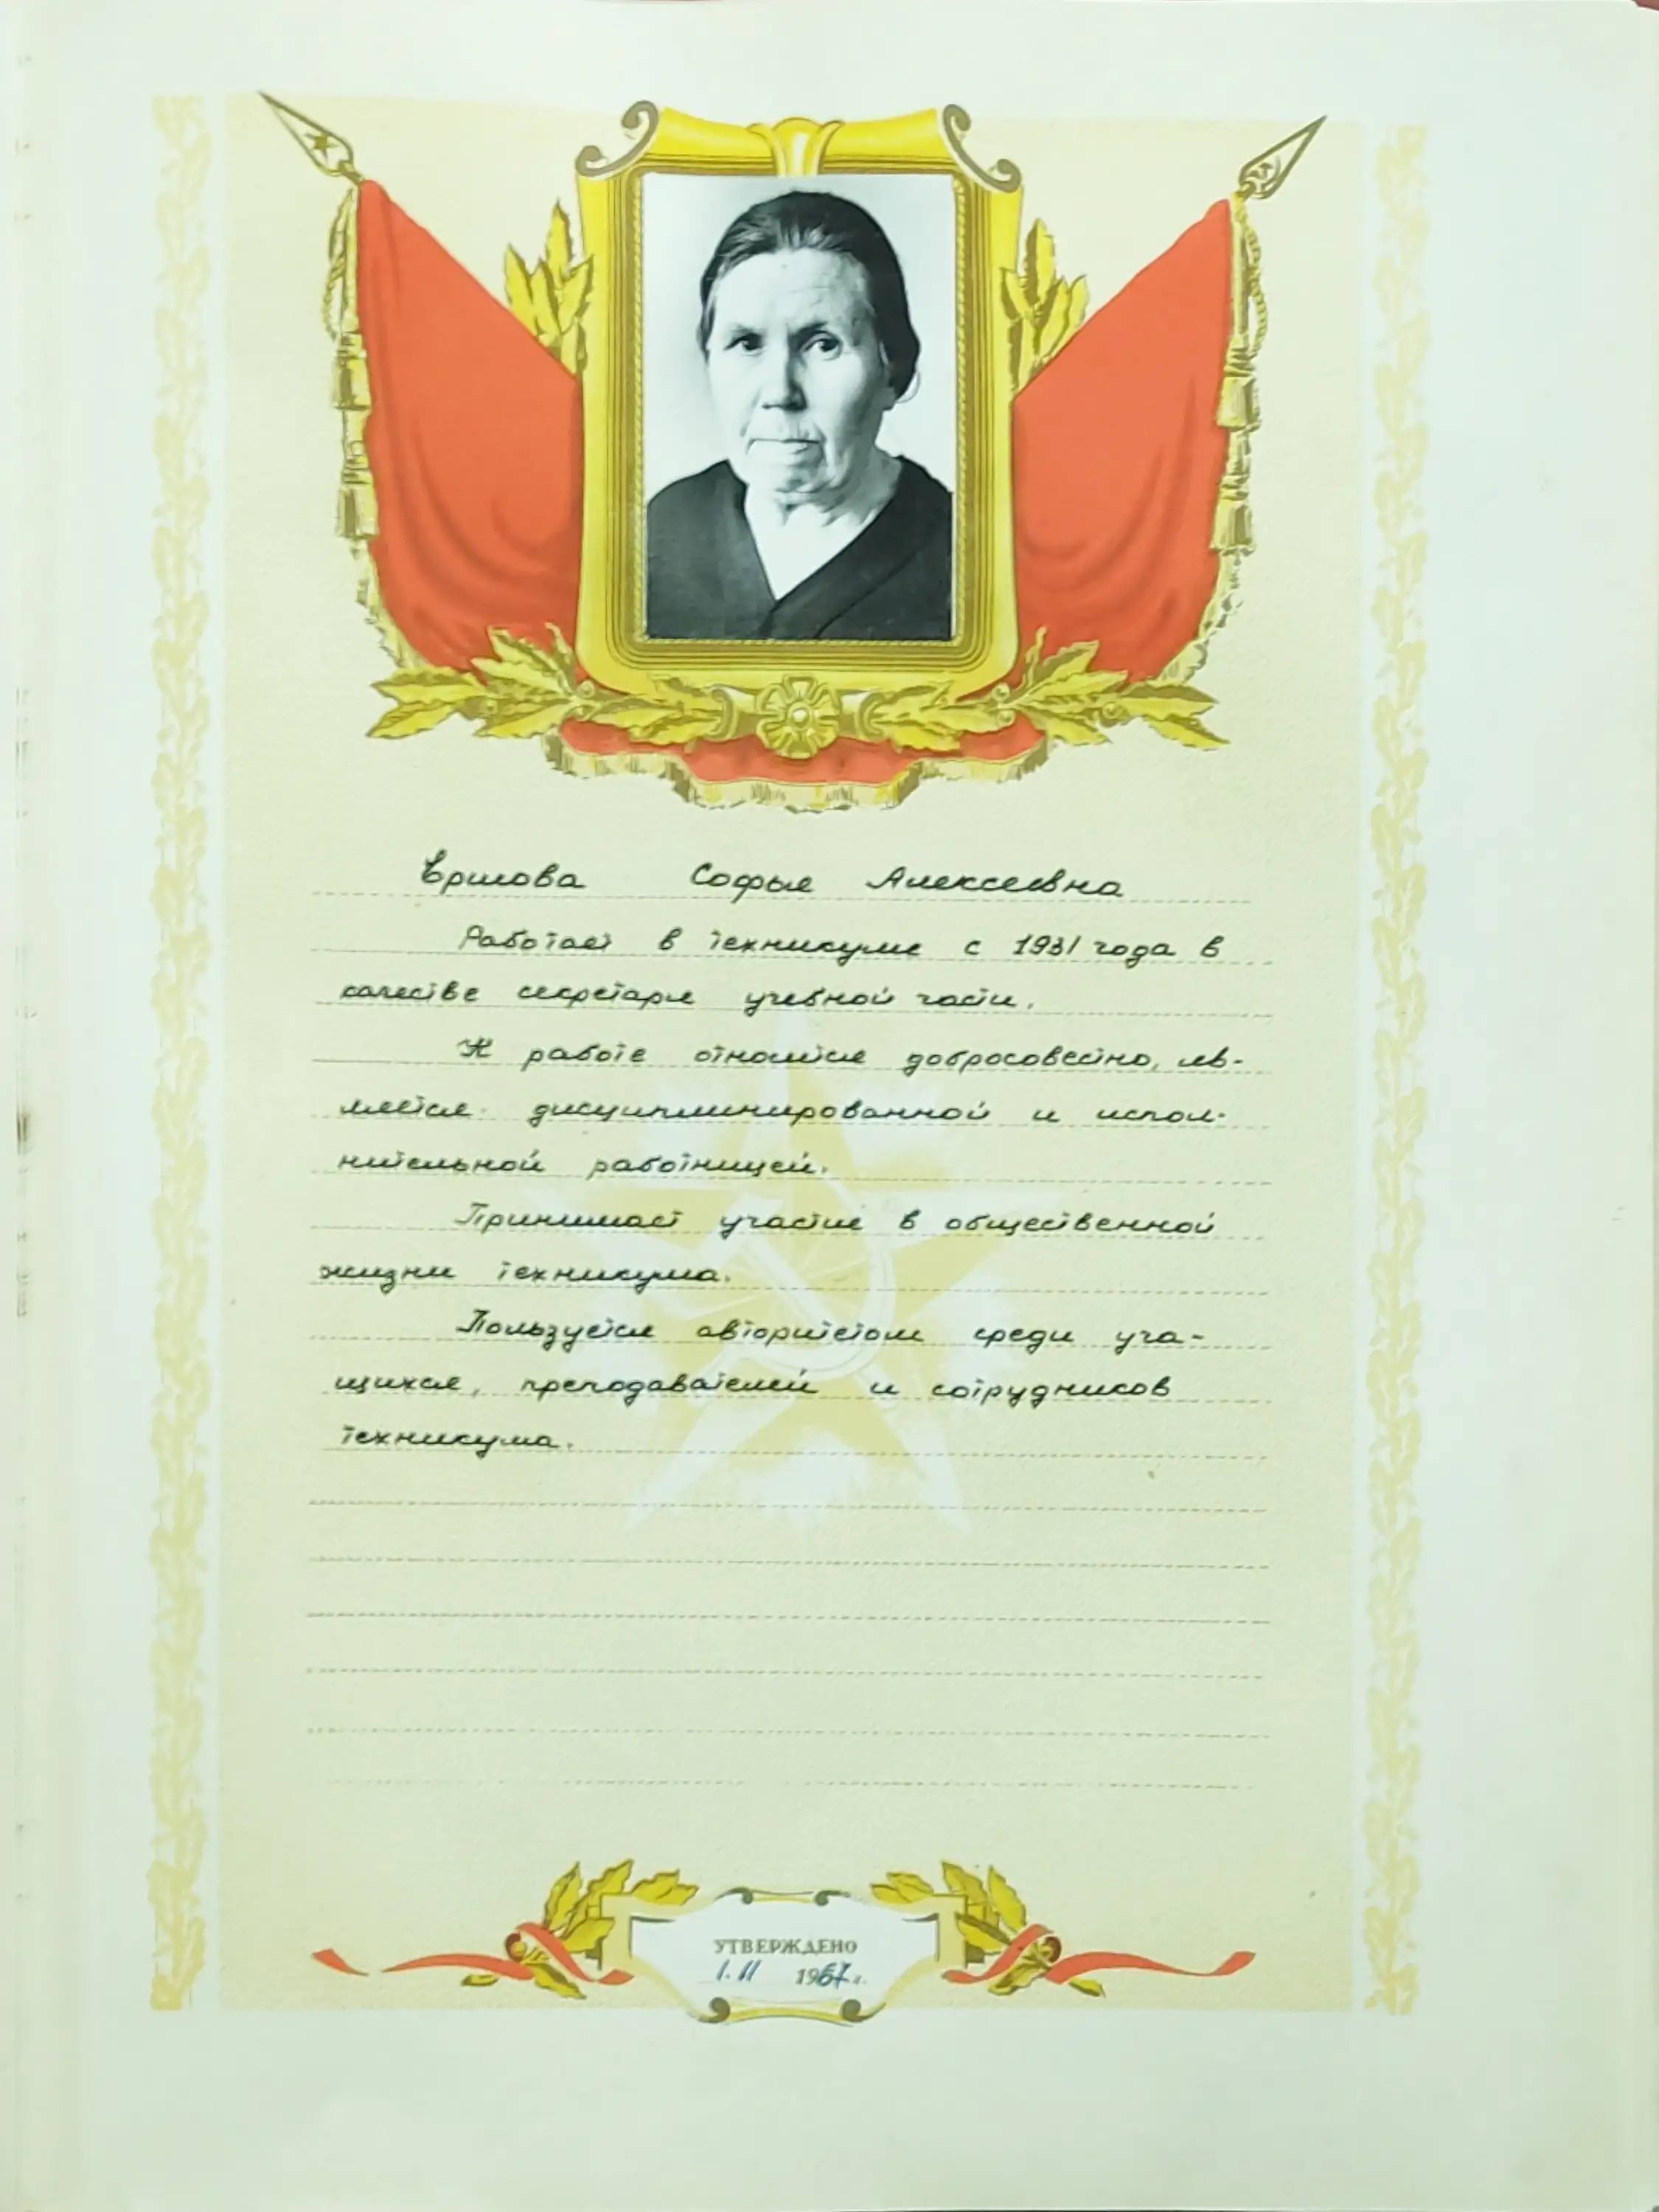 Ершова Софья Алексеевна
Работает в техникуме с 1931 года в
качестве секретаря учебной части.
К работе относится добросовестно, яв-
ляется дисциплинированной и испол-
нительной работницей.
Принимает участие в общественной
жизни техникума.
Пользуется авторитетом среди уча-
щихся, преподавателей и сотрудников
техникума.
УТВЕРЖДЕНО
1.11 1967 г.